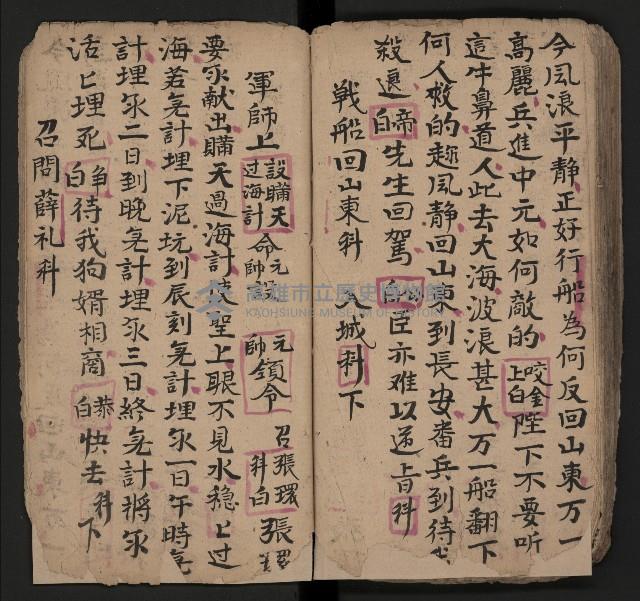 今風浪平静正好行船為何反回山東万一
高麗兵進中元如何敵的 咬金上白 陛下不要听
這牛鼻道人此去大海波浪甚大万一船翻下
何人救的趂風静回山東到長安番兵到待
殺退 帝白 先生回駕 白 臣亦难以逆上旨 科
戦船回山東科 入城科下
軍師上 設瞞天过海計 命元帥 元帥領令 召張環科白 張
要尔献出瞞天過海計 聖上眼不見水穩匕过
海若无計埋下泥坑到辰刻无計埋尔一日午時无
計埋尔二日到晚无計埋尔三日終无計将尔
活匕埋死 白 待我狗婿相商 恭白 快去科下
召問薛礼科
高雄市立歷史博物館
KAOHSIUNG MUSEUM OF HISTORY